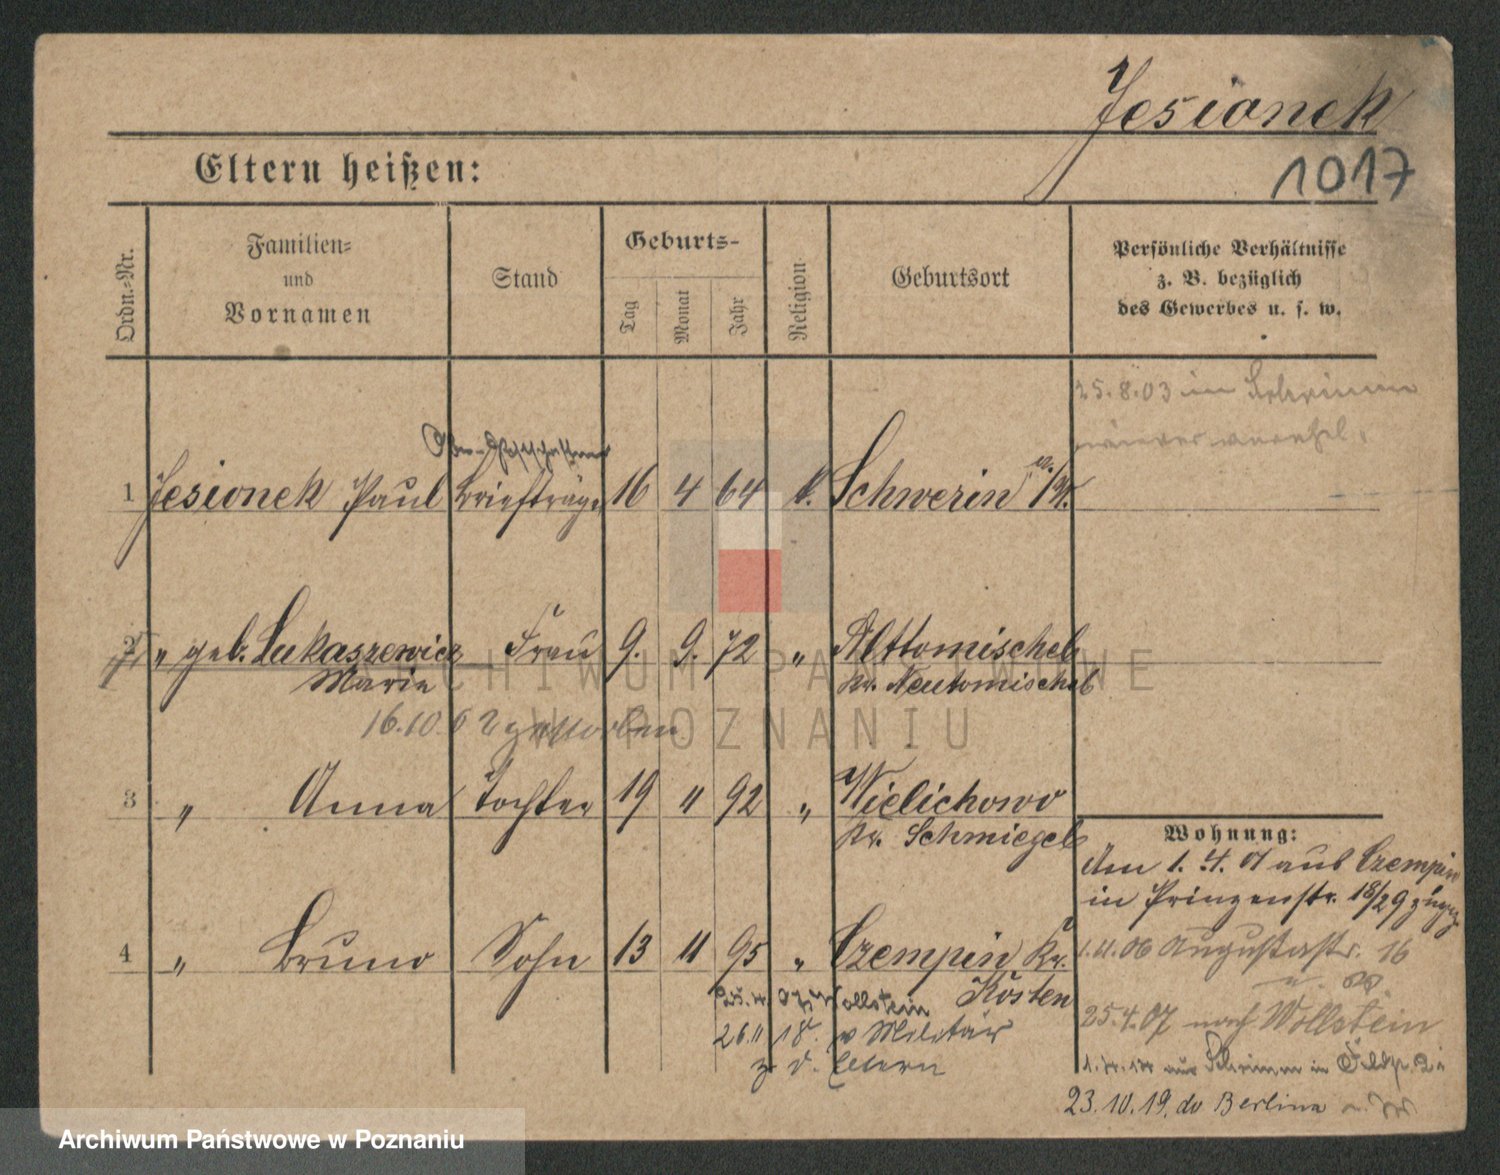 Jesionek
1017
Eltern heißen:
Ordn.-Nr.
Familien-
und
Vornamen
Stand
Geburts-
Tag
Monat
Jahr
Religion
Geburtsort
Persönliche Verhältnisse
z. B. bezüglich
des Gewerbes u. s. w.
25.8.03 in Schrimm
Ober-Postschaffner
1 Jesionek Paul Briefträger 16 4 64 k. Schwerin a/W.
2 " geb. Lukaszewicz Frau 9. 9. 72 " Alttomischel
Marie Kr. Neutomischel
16.10. gestorben
3 " Anna Tochter 19 11 92 " Wielichowo
Kr. Schmiegel
4 " Bruno Sohn 13 11 95 " Czempin Kr.
Kosten
Wollstein
26.11.18. v Militär
z. d. Eltern
Wohnung:
Am 1. 4. 01 aus Czempin
in Prinzenstr. 18/29 zugez
1.11.06 Augustastr. 16
25.4.07 nach Wollstein
aus Schrimm in
23.10.19. do Berlina
ARCHIWUM PAŃSTWOWE
W POZNANIU
Archiwum Państwowe w Poznaniu